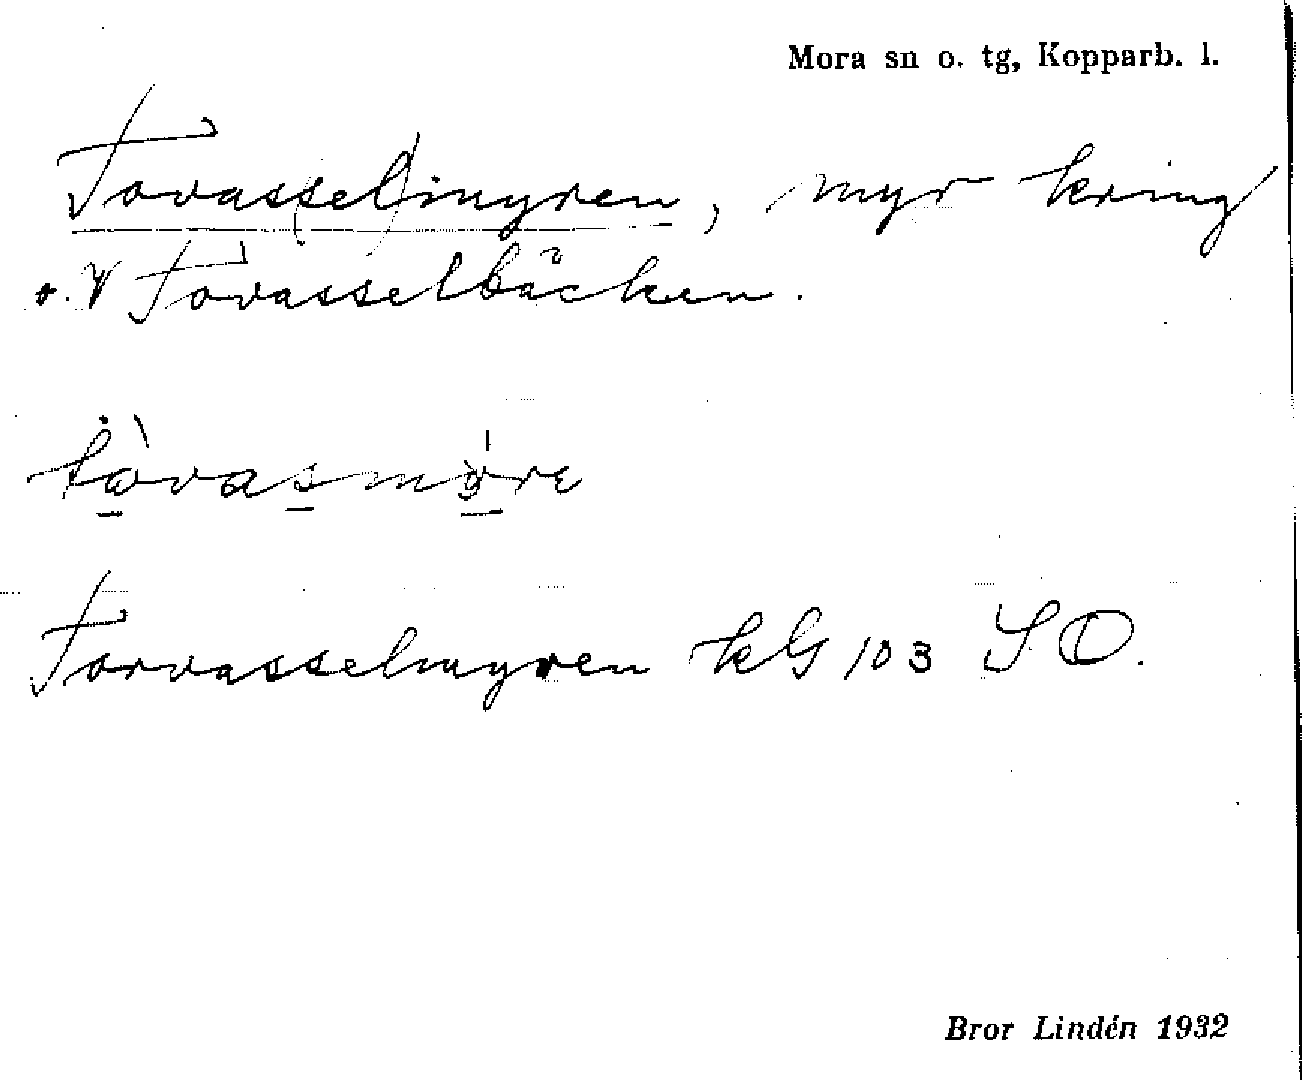 Mora sn o. tg, Kopparb. l.
Tovas(sel)myren, myr kring
o. V Tovasselbäcken.
tòvasmo̍re
Torvasselmyren kG 103 SO.
Bror Lindén 1932